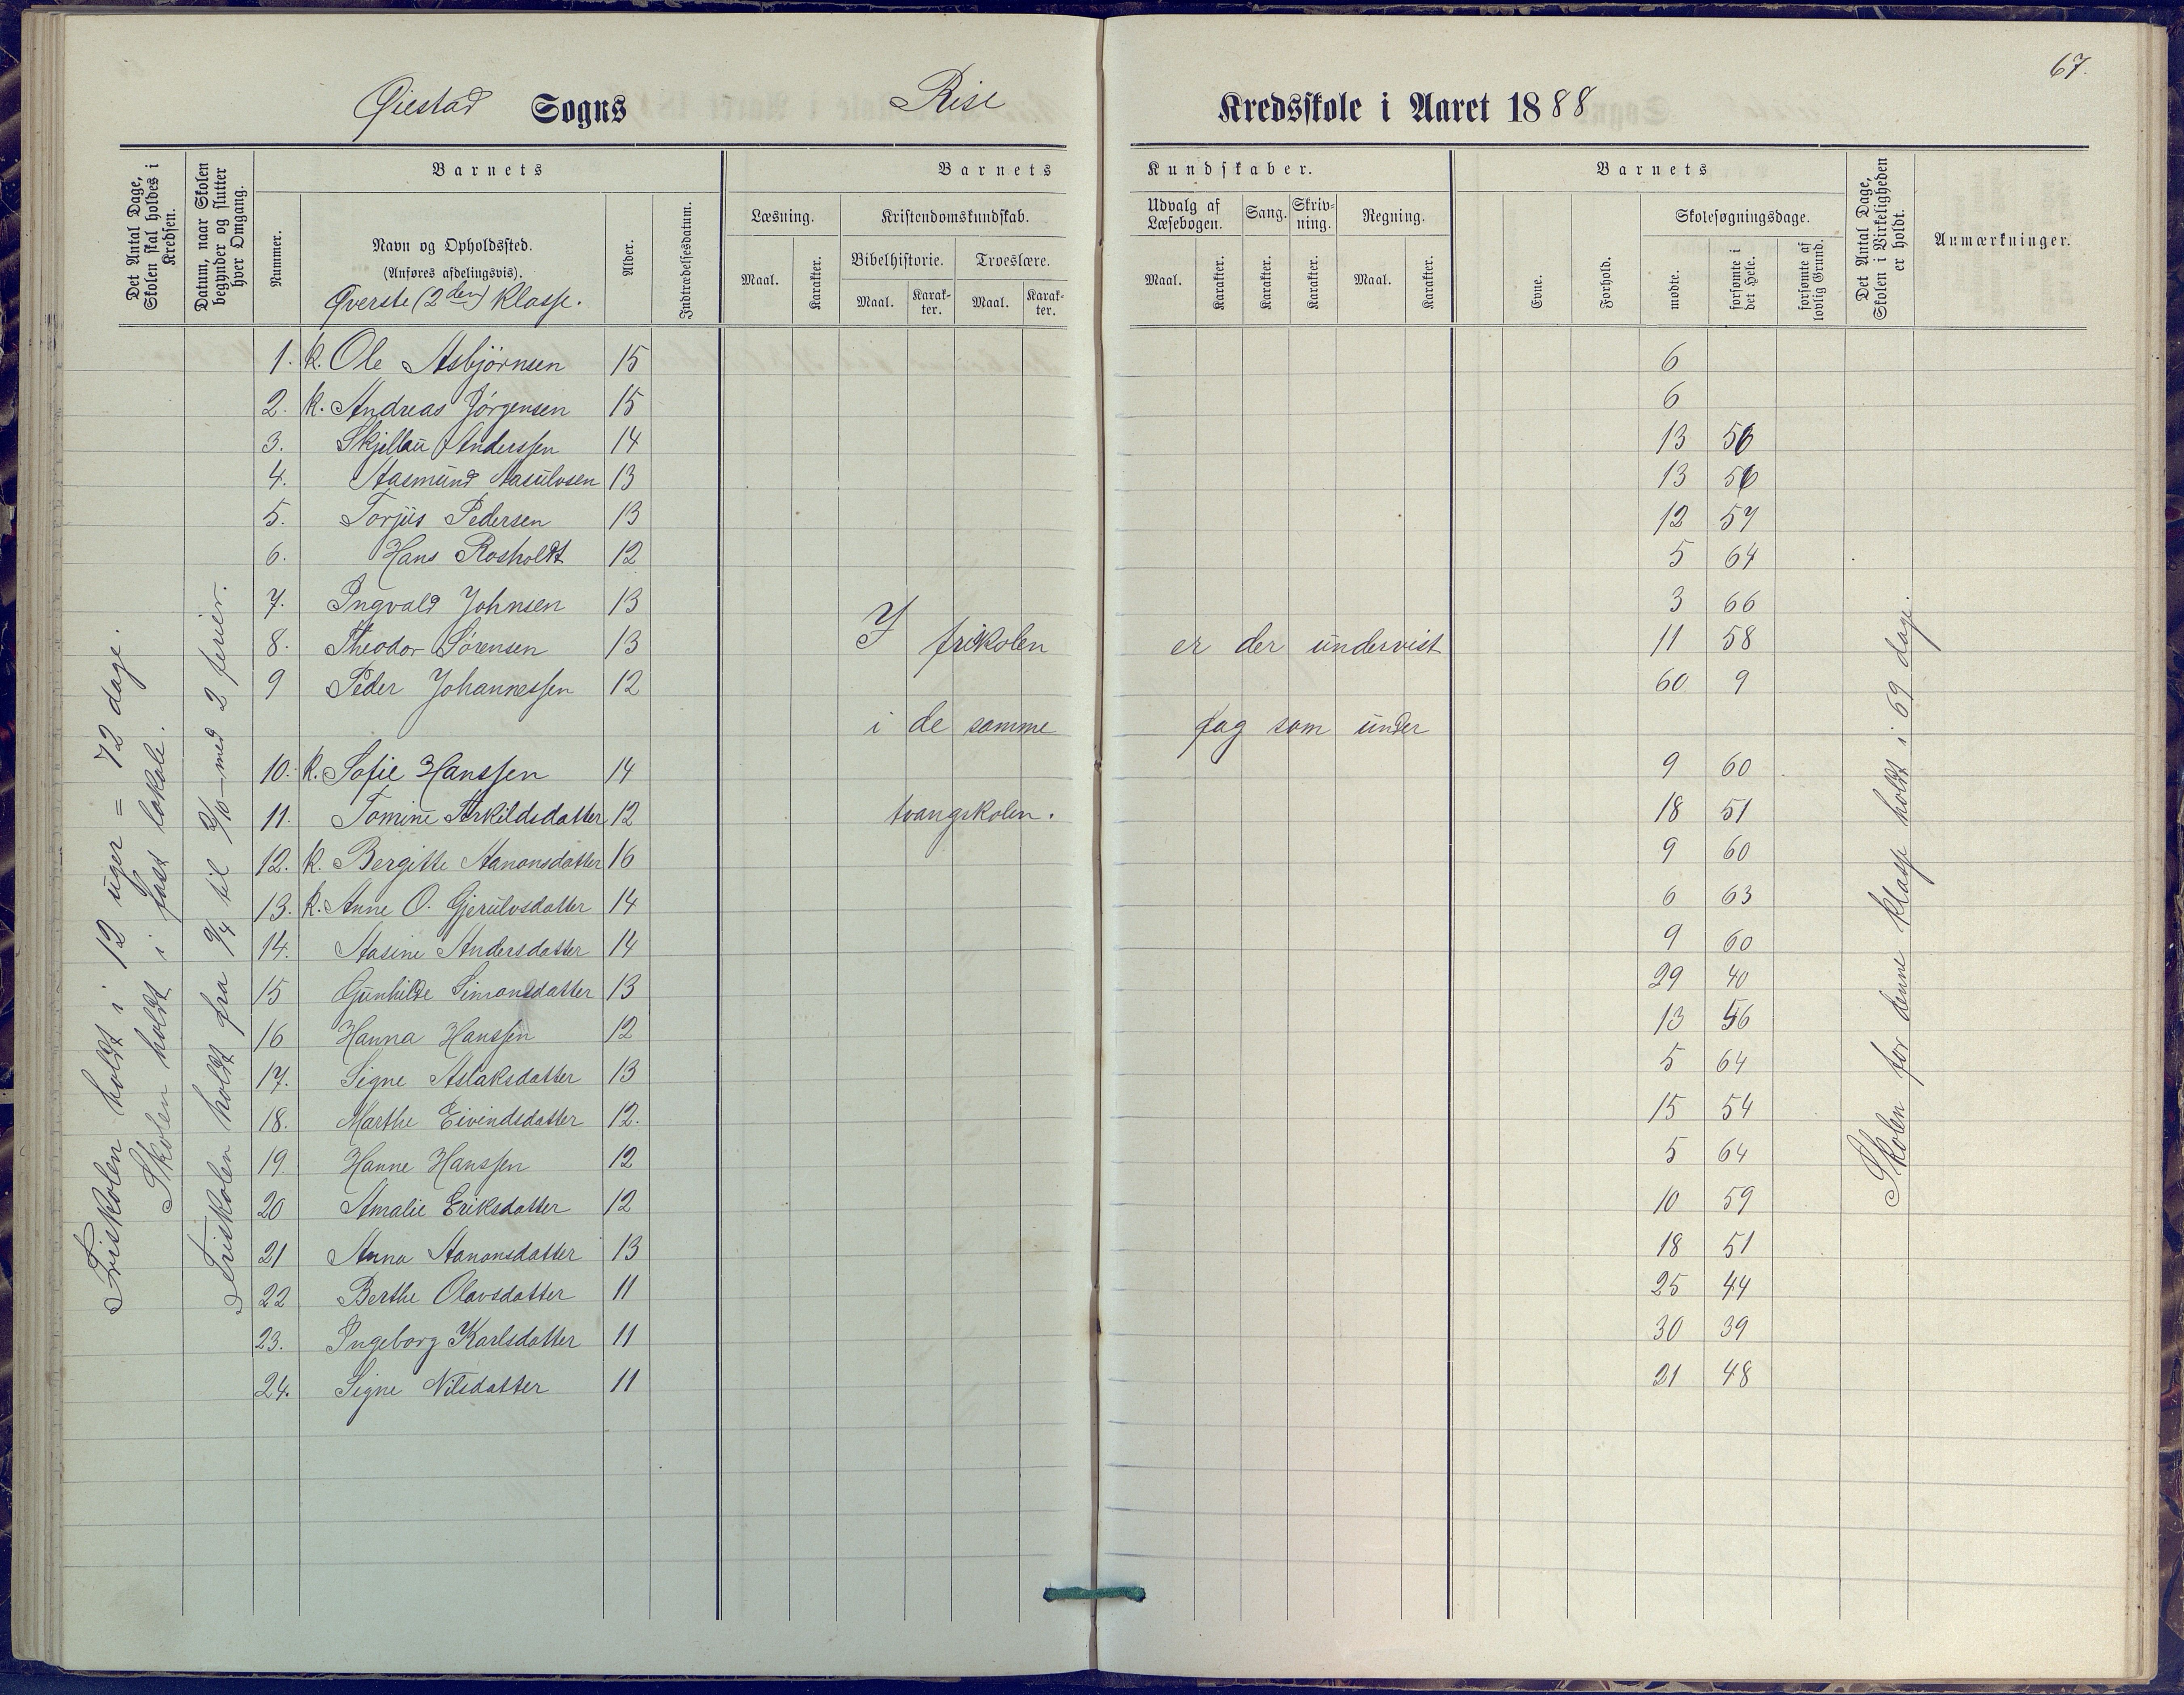 67.
Øiestad Sogns Rise Kredsskole i Aaret 1888
Det Antal Dage, Skolen skal holdes i Kredsen.
Datum, naar Skolen begynder og slutter hver Omgang.
Barnets
Nummer.
Navn og Opholdssted.
(Anføres afdelingsvis).
Øverste (2den) Klasse.
Alder.
Indtrædelsesdatum.
Barnets Kundskaber.
Læsning.
Maal.
Karakter.
Kristendomskundskab.
Bibelhistorie.
Maal.
Karakter.
Troeslære.
Maal.
Karakter.
Udvalg af Læsebogen.
Maal.
Karakter.
Sang.
Karakter.
Skrivning.
Karakter.
Regning.
Maal.
Karakter.
Barnets
Evne.
Forhold.
Skolesøgningsdage.
mødte.
forsømte i det Hele.
forsømte af lovlig Grund.
Det Antal Dage, Skolen i Virkeligheden er holdt.
Anmærkninger.
Friskolen holdt i 12 uger = 72 dage.
Skolen holdt i fast lokale.
Friskolen holdt fra 9/4 til 2/10 med 2 ferier.
1. k. Ole Asbjørnsen 15 6
2. k. Andreas Jörgensen 15 6
3. Skjellau Anderssen 14 13 56
4. Aasmund Aasulvsen 13 13 56
5. Torjus Pedersen 13 12 57
6. Hans Rosholdt 12 5 64
7. Ingvald Johnsen 13 3 66
8. Theodor Sørensen 13 11 58
9 Peder Johannessen 12 60 9
I friskolen er der undervist
i de samme fag som under
tvangskolen.
10. k. Sofie Hanssen 14 9 60
11. Tomine Terkildsdatter 12 18 51
12. k. Bergitte Aanonsdatter 16 9 60
13. k. Anne O. Gjerulvsdatter 14 6 63
14. Aasine Andersdatter 14 9 60
15 Gunhilde Simonsdatter 13 29 40
16 Hanna Hanssen 12 13 56
17. Signe Aslaksdatter 13 5 64
18. Marthe Eivindsdatter 12. 15 54
19. Hanne Hanssen 12 5 64
20 Amalie Eriksdatter 12 10 59
21 Anna Aanonsdatter 13 18 51
22 Berthe Olavsdatter 11 25 44
23. Ingeborg Karlsdatter 11 30 39
24. Signe Nilsdatter 11 21 48
Skolen for denne klasse holdt i 69 dage.